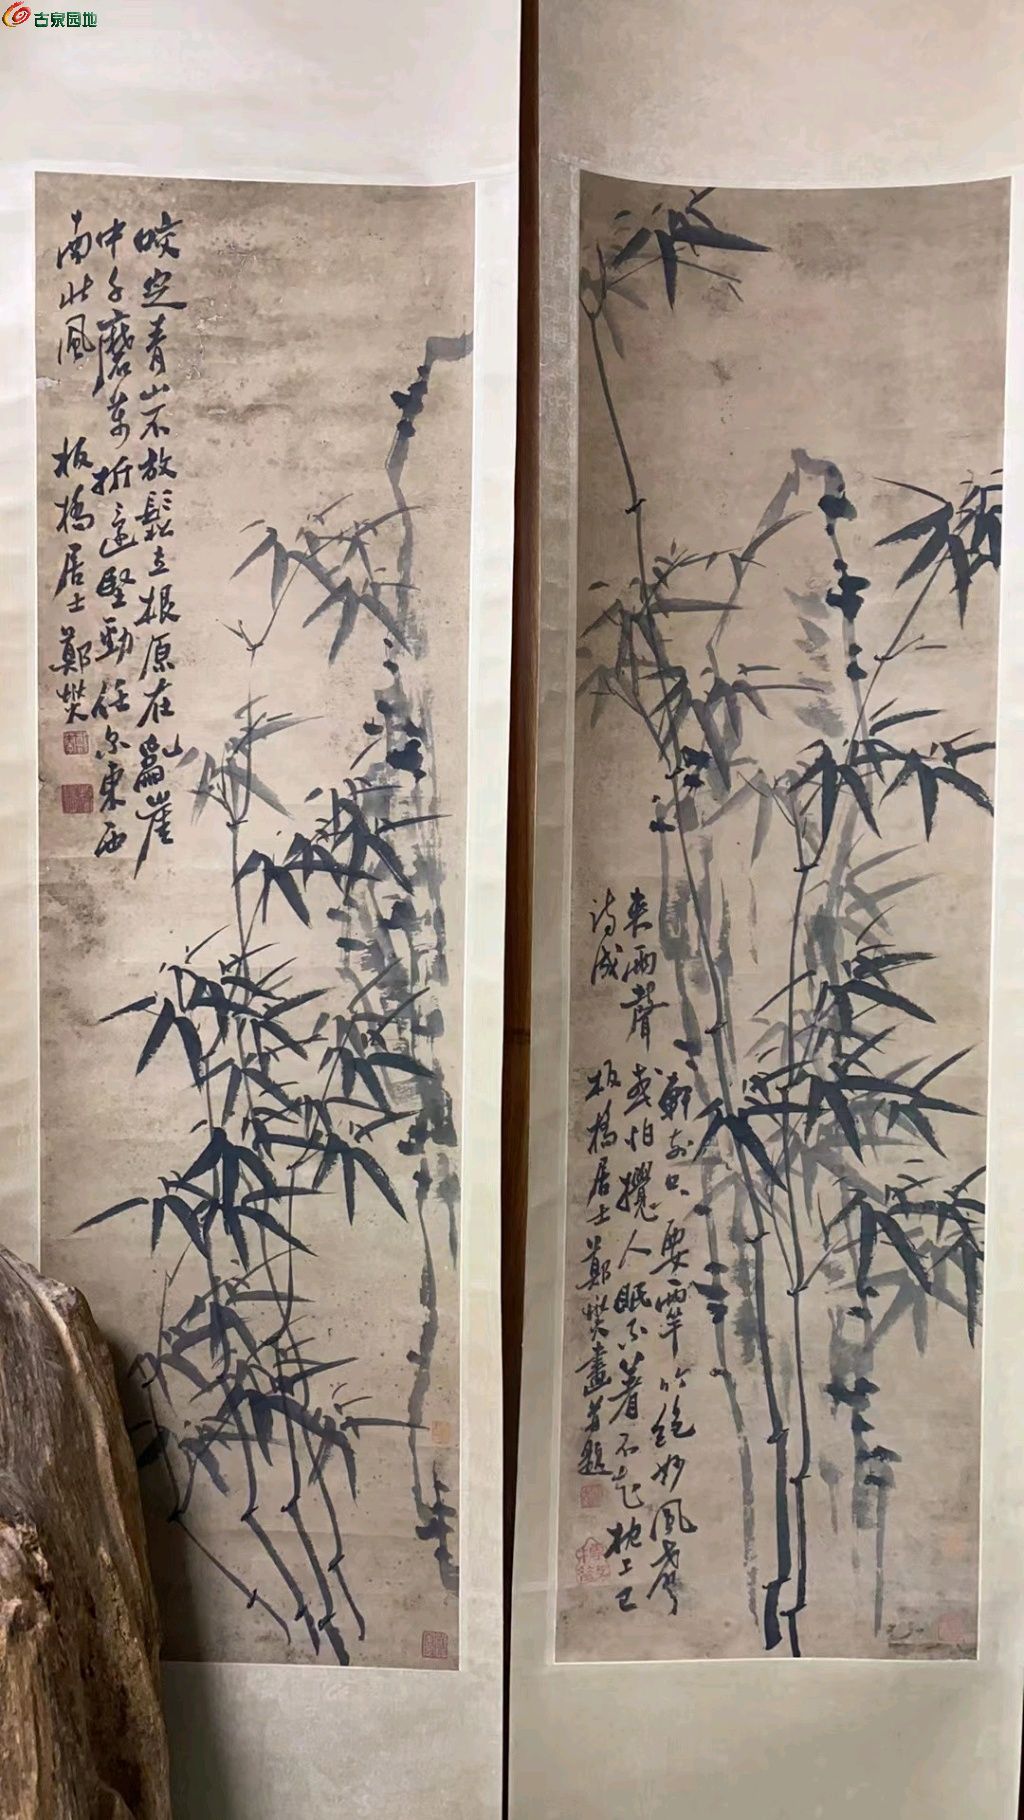 古泉园地
咬定青山不放鬆立根原在亂崖
中千磨萬折還堅勁任尔東西
南北風
板橋居士鄭燮
軒前只要兩竿竹絕妙風聲
夾雨聲或怕攪人眠不著不知枕上已
詩成
板橋居士鄭燮畫并題